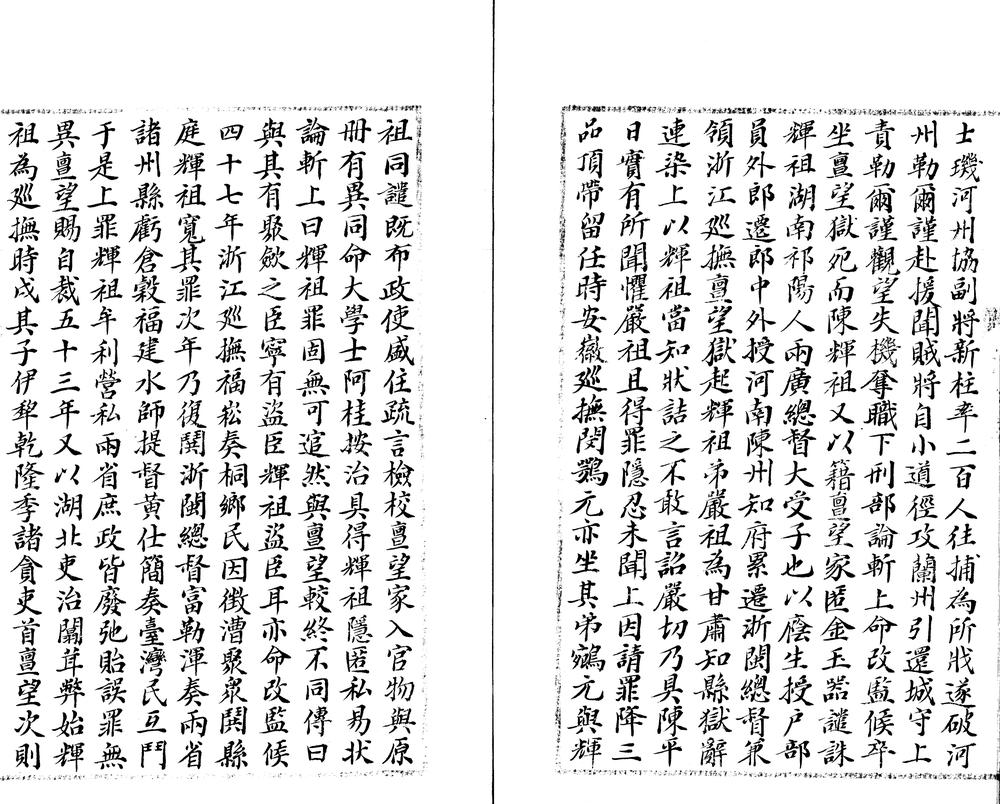 士璣河州協副將新柱率二百人往捕為所戕遂破河
州勒爾謹赴援聞賊將自小道徑攻蘭州引還城守上
責勒爾謹觀望失機奪職下刑部論斬上命改監候卒
坐亶望獄死而陳輝祖又以籍亶望家匿金玉器譴誅
輝祖湖南祁陽人兩廣總督大受子也以廕生授戶部
員外郎遷郎中外授河南陳州知府累遷浙閩總督兼
領浙江廵撫亶望獄起輝祖弟嚴祖為甘肅知縣獄辭
連染上以輝祖當知狀詰之不敢言詔嚴切乃具陳平
日實有所聞懼嚴祖且得罪隱忍未聞上因請罪降三
品頂帶留任時安徽廵撫閔鶚元亦坐其弟鵷元與輝
祖同譴既布政使盛住疏言檢校亶望家入官物與原
冊有異同命大學士阿桂按治具得輝祖隱匿私易狀
論斬上曰輝祖罪固無可逭然與亶望較終不同傳曰
與其有聚歛之臣寧有盜臣輝祖盜臣耳亦命改監候
四十七年浙江廵撫福崧奏桐鄉民因徵漕聚衆鬨縣
庭輝祖寬其罪次年乃復鬨浙閩總督富勒渾奏兩省
諸州縣虧倉穀福建水師提督黃仕簡奏臺灣民互鬥
于是上罪輝祖牟利營私兩省庶政皆廢弛貽誤罪無
異亶望賜自裁五十三年又以湖北吏治闒茸弊始輝
祖為廵撫時戍其子伊犂乾隆季諸貪吏首亶望次則